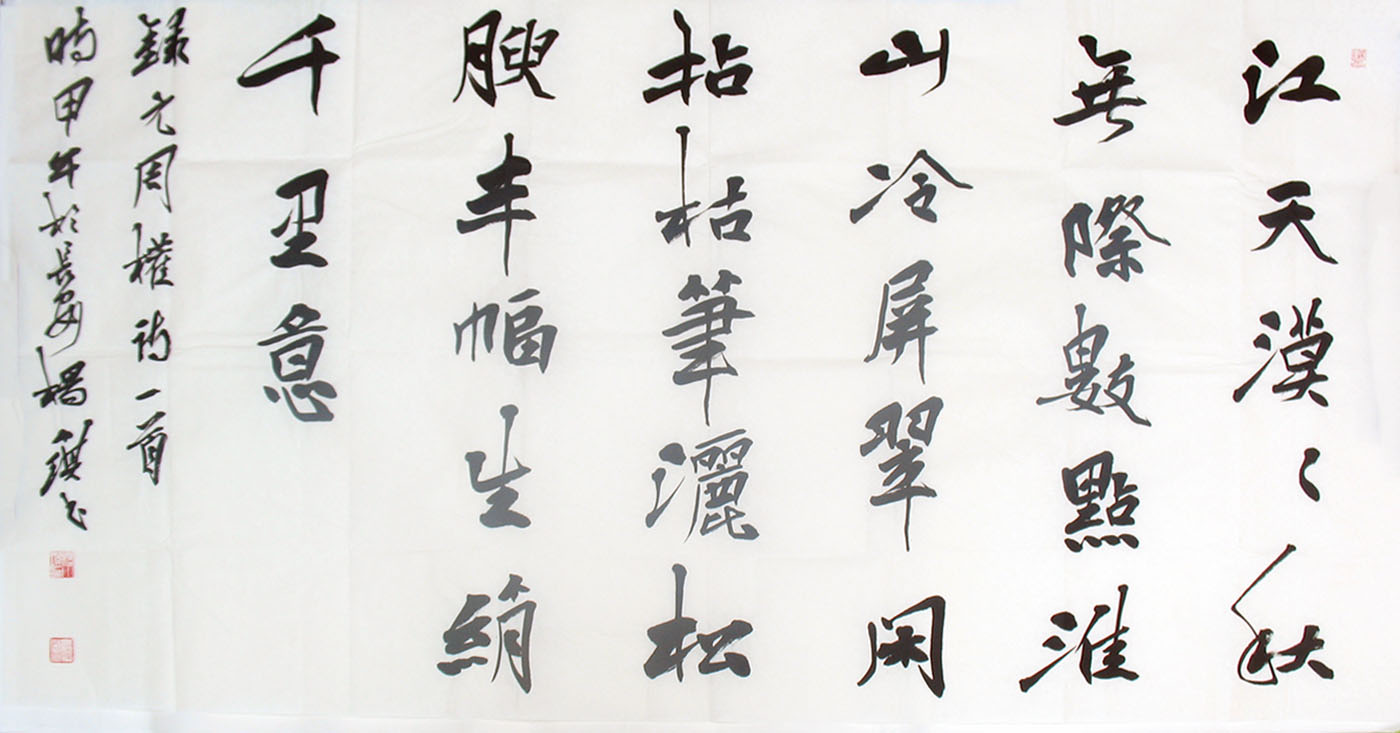 江天漠〻秋
無際數點淮
山冷屏翠閑
拈枯筆灑松
腴半幅生綃
千里意
錄元周權詩一首
時甲午於長安楊書